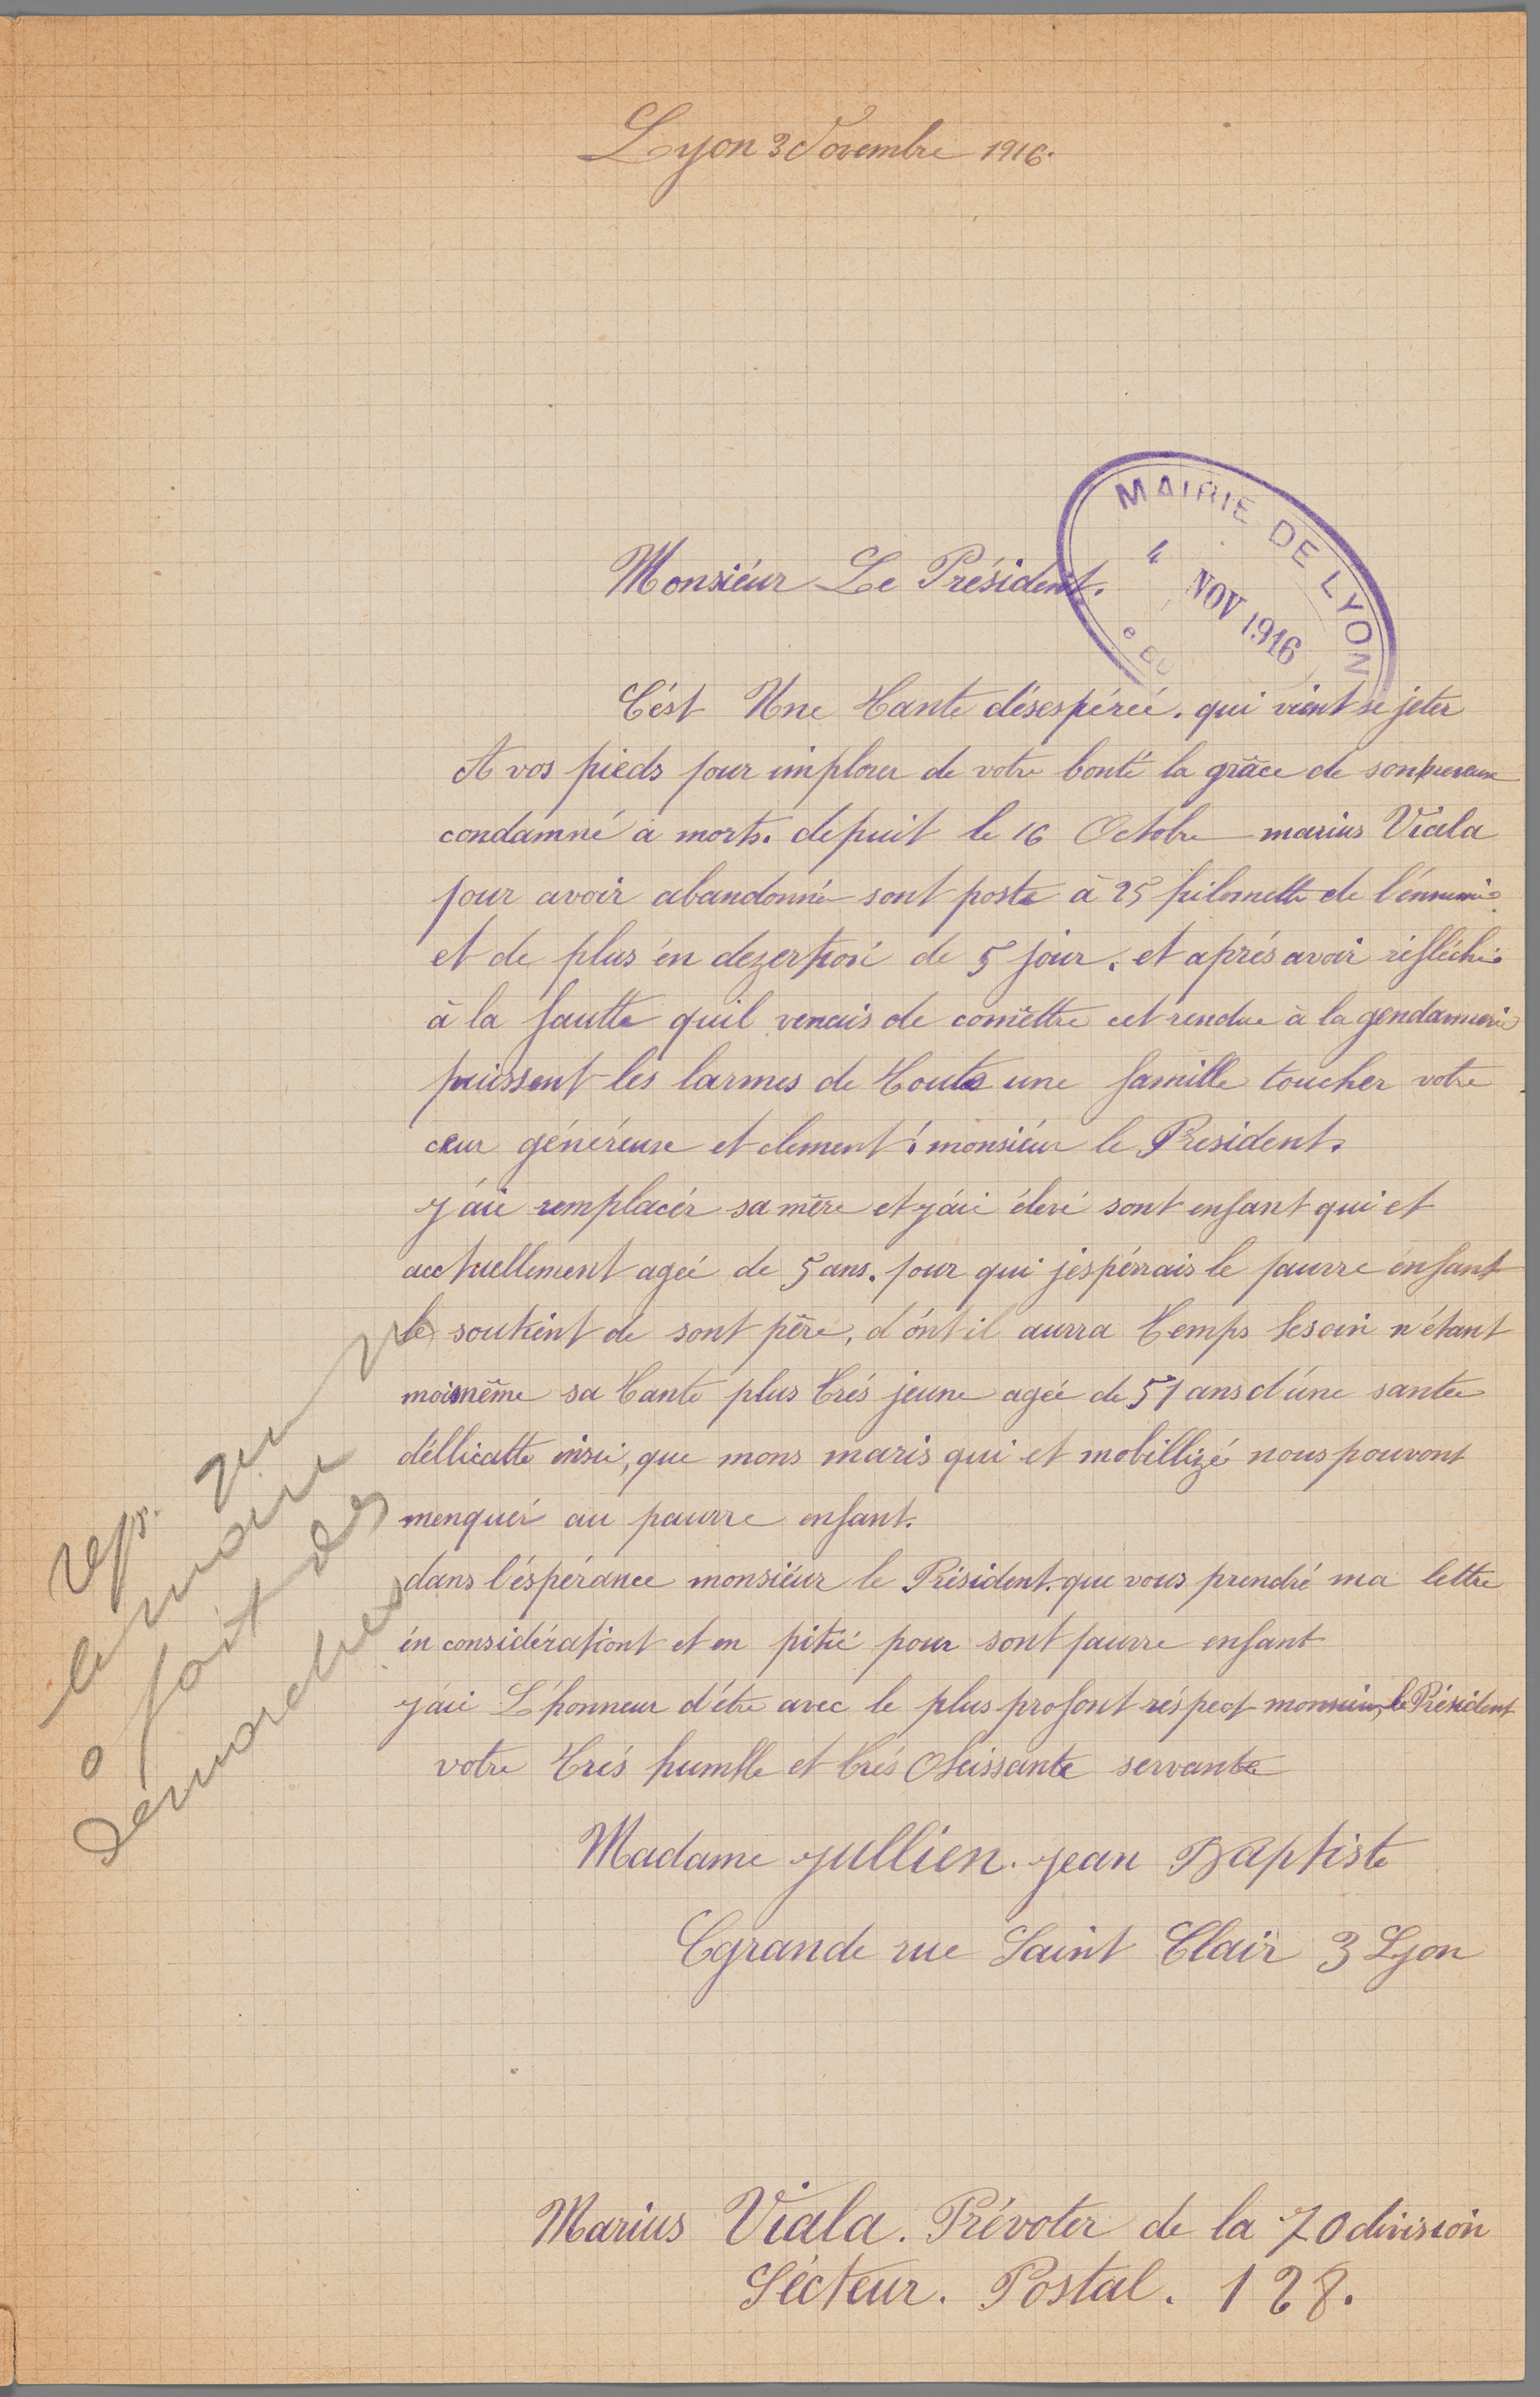 Lyon 3 Novembre 1916.
MAIRIE DE LYON
4 NOV 1916
Monsiéur Le Président.
C'ést Une Tante désespéreé. qui vient se jeter
A vos pieds pour implorer de votre bonté la grâce de son neveux
condamné a morts. depuit le 16 Octobre marius Viala
pour avoir abandonné sont poste à 25 kilomettre de l'énnemie
et de plus én dezertion de 5 jour. et aprés avoir réfléchie
à la fautte quil venais de comêttre cet rendue à la gendarmerie
puissent les larmes de Toute une famille toucher votre
cœur généreuse et clement! monsiéur le President.
j'ái remplacér sa mère et j'ái élevé sont enfant qui et
acctuellement ageé de 5 ans. pour qui j'espérrais le pauvre enfant
le soutient de sont père, d'ónt il aurra Temps besoin n'étant
moi même sa Tante plus trés jeune agée de 51 ans d'úne santée
déllicatte insi, que mons maris qui et mobillizé nous pouvont
menquér au pauvre enfant.
dans l'éspérance monsiéur le Président. que vous prendré ma lettre
én considérationt et en pitié pour sont pauvre enfant
j'ái L'honneur d'étre avec le plus profont réspect monsieur, le Président
votre trés humble et trés Obeissante servante
Madame Jullien. Jean Baptiste
Grande rue Saint Clair 3 Lyon
Marius Viala. Prévoter de la 70 division
Sécteur. Postal. 128.
rep. que
le maire
a fait des
démarches